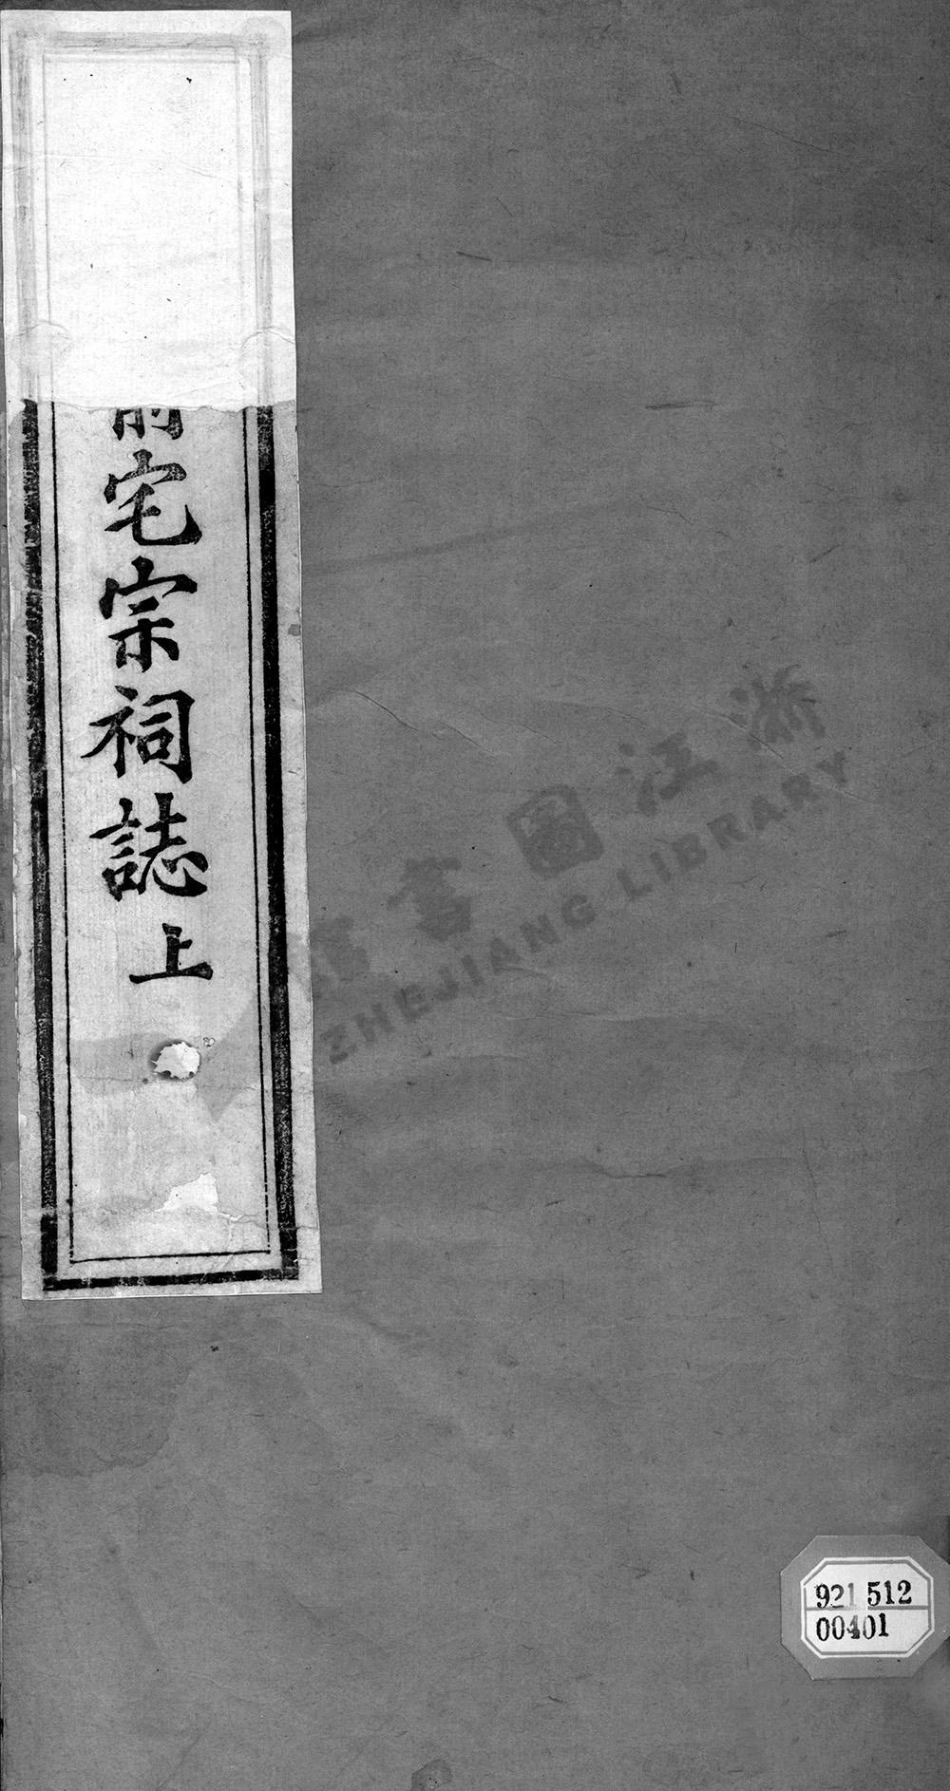 前宅宗祠誌上
浙江圖書館
ZHEJIANG LIBRARY
921 512
00401